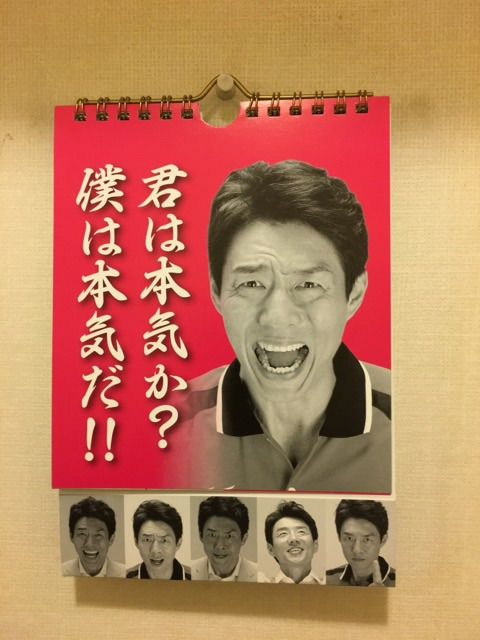 君は本気か？
僕は本気だ!!